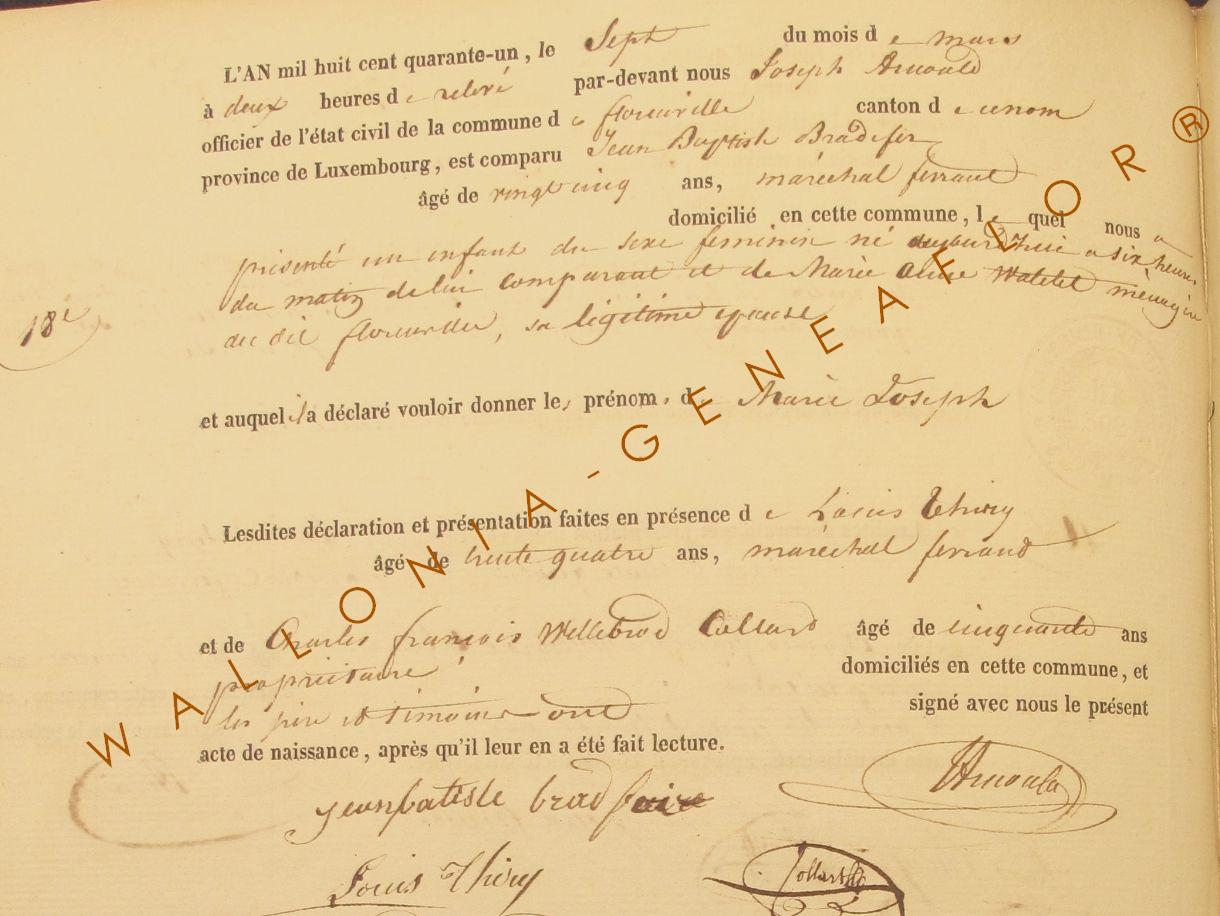 L'AN mil huit cent quarante-un, le Sept du mois de mars
à deux heures de relevé par-devant nous Joseph Arnould
officier de l'état civil de la commune de florenville canton de
province de Luxembourg, est comparu Jean Baptiste Bradfer
âgé de vingt cinq ans, maréchal ferrant
domicilié en cette commune, lequel nous a
présenté un enfant du sexe feminin né aujourd'hui a six heures
du matin de lui comparant et de Marie Anne Watelet ménagère
au dit florenville, sa légitime epouse
18e
et auquel il a déclaré vouloir donner les prénoms de Marie Joseph
Lesdites déclaration et présentation faites en présence de Louis Thiry
âgé de trente quatre ans, maréchal ferrand
et de Charles françois Willebrod Collard âgé de cinquante ans
propriétaire domiciliés en cette commune, et
les père et témoins ont signé avec nous le présent
acte de naissance, après qu'il leur en a été fait lecture.
jeanbatiste bradfaire JArnould
Louis Thiry Collard
WALLONIA-GENEAFLOR®